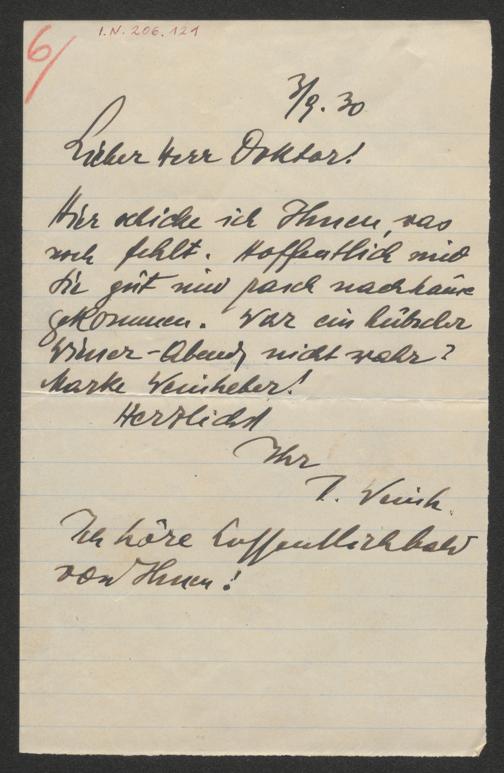 6/
I.N. 206.121
3/9.30
Lieber Herr Doktor!
Hier schicke ich Ihnen, was
noch fehlt. Hoffentlich sind
Sie gut und rasch nachhause
gekommen. War ein hübscher
Wiener-Abend, nicht wahr?
Marke Weinheber!
Herzlichst
Ihr
J. Weinh.
Ich höre hoffentlich bald
von Ihnen!